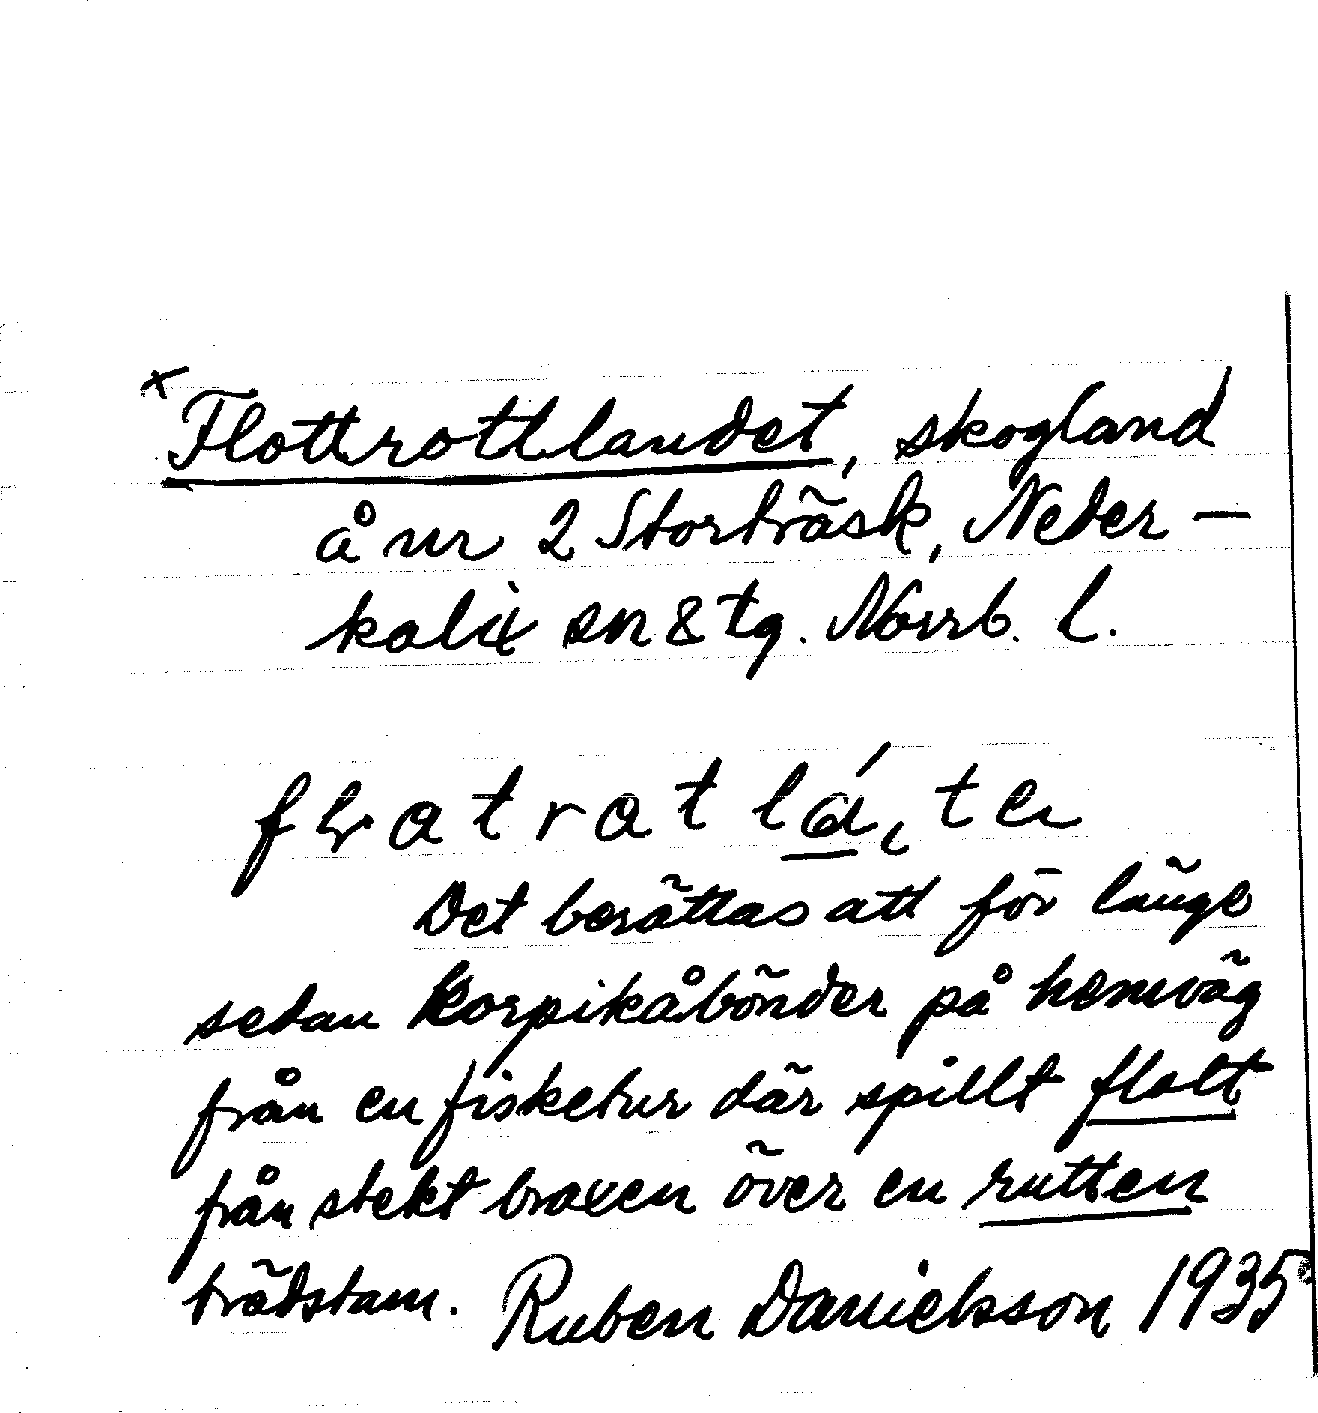 x Flottrottlandet, skogland
å nr 2 Storträsk, Neder-
kalix sn & tg. Norrb. l.
Det berättas att för länge
sedan Korpikåbönder på hemväg
från en fisketur där spillt flott
från stekt braxen över en rutten
trädstam. Ruben Danielsson 1935